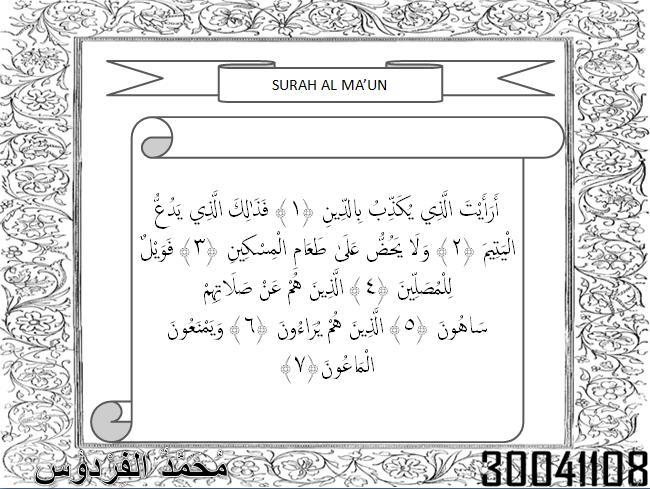 SURAH AL MA’UN
أَرَأَيْتَ الَّذِي يُكَذِّبُ بِالدِّينِ ﴿١﴾ فَذَٰلِكَ الَّذِي يَدُعُّ
الْيَتِيمَ ﴿٢﴾ وَلَا يَحُضُّ عَلَىٰ طَعَامِ الْمِسْكِينِ ﴿٣﴾ فَوَيْلٌ
لِلْمُصَلِّينَ ﴿٤﴾ الَّذِينَ هُمْ عَنْ صَلَاتِهِمْ
سَاهُونَ ﴿٥﴾ الَّذِينَ هُمْ يُرَاءُونَ ﴿٦﴾ وَيَمْنَعُونَ
الْمَاعُونَ ﴿٧﴾
مُحَمَّدُ الفَرْدَوْس
30041108